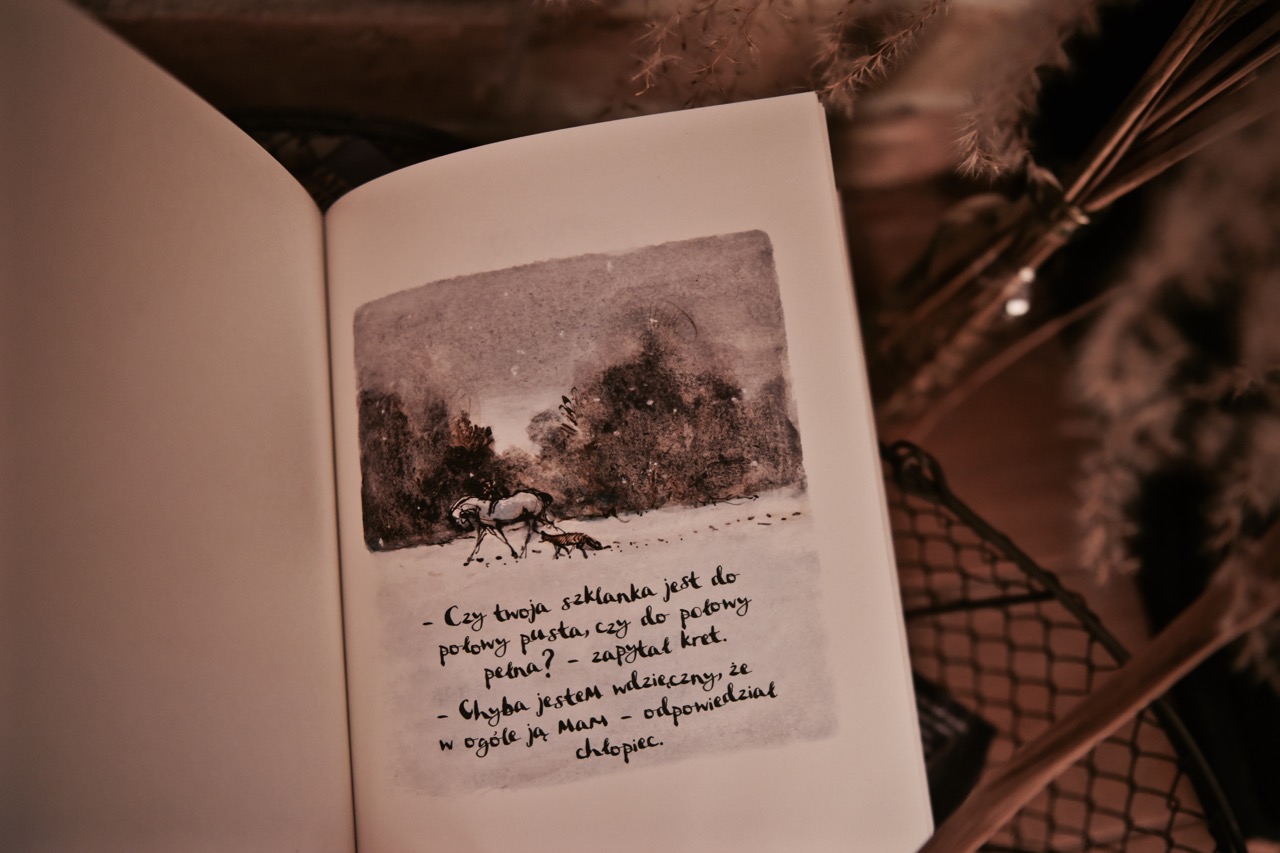 - Czy twoja szklanka jest do
połowy pusta, czy do połowy
pełna? - zapytał kret.
- Chyba jestem wdzięczny, że
w ogóle ją mam - odpowiedział
chłopiec.